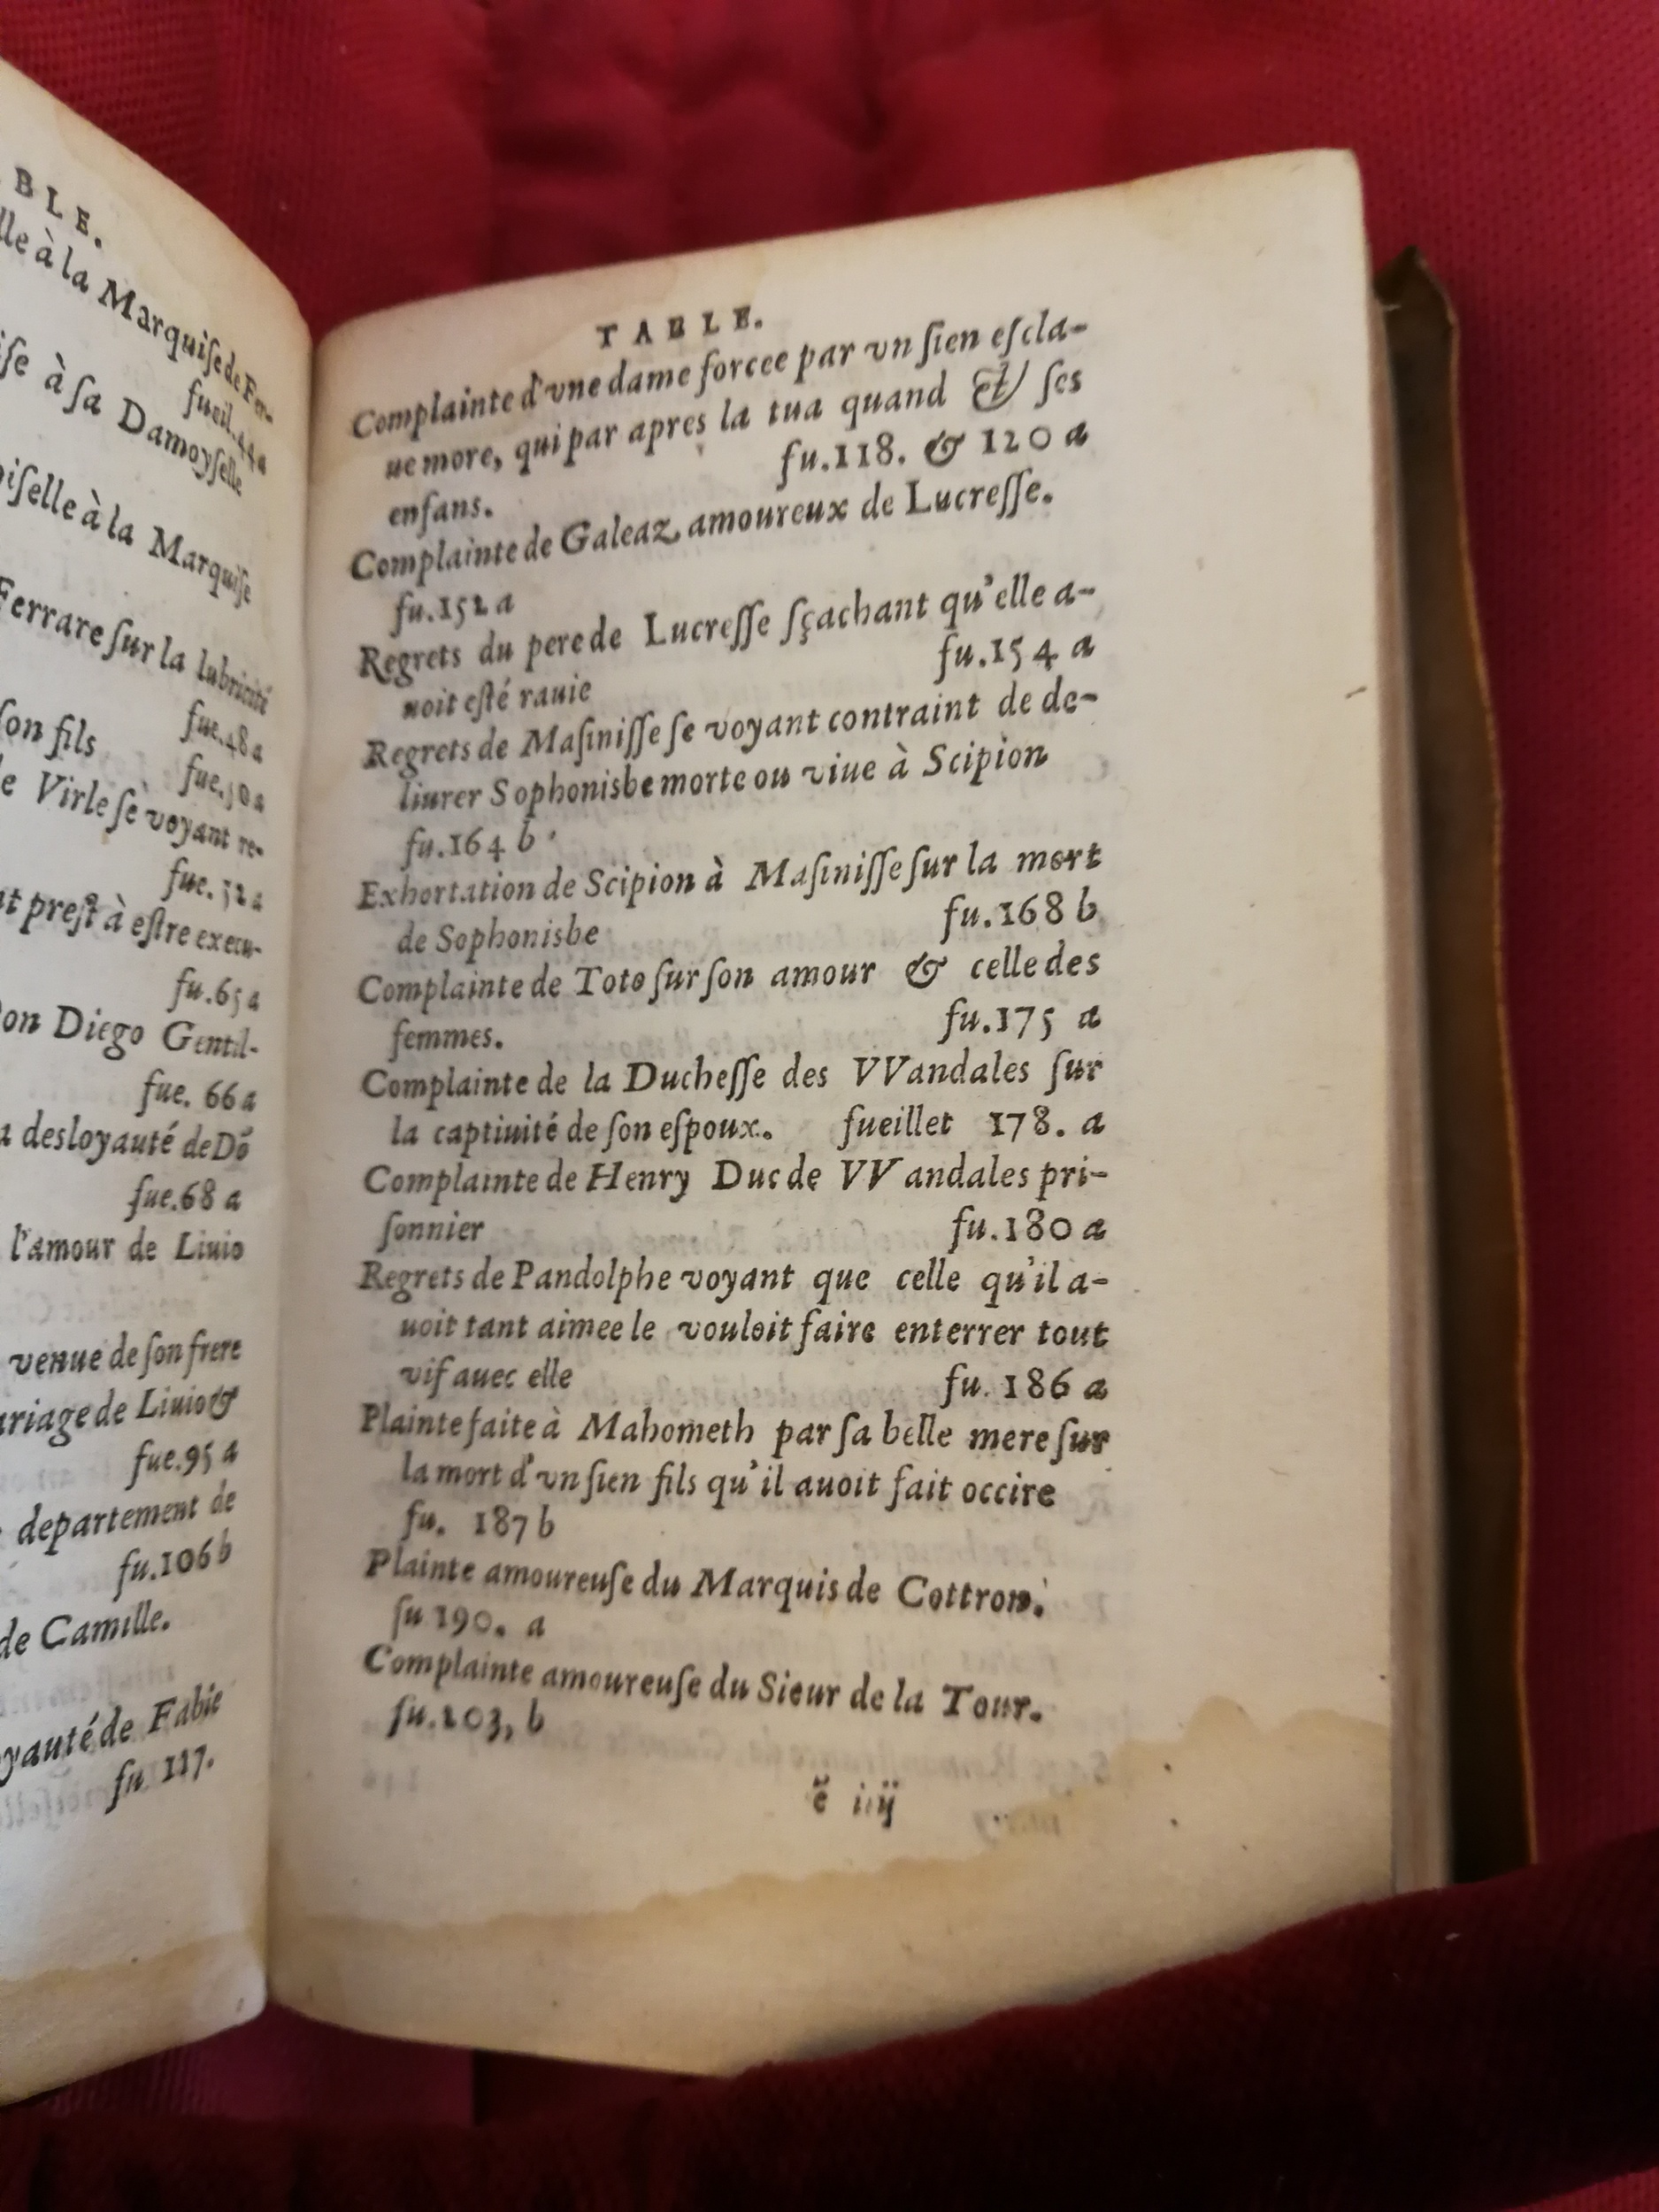 BLE.
lle à la Marquiſe de Fer-
fueil.44a
iſe à ſa Damoyſelle
oiſelle à la Marquiſe
Ferrare ſur la lubricité
fue.48a
ſon fils
fue.50a
e Virle ſe voyant re-
fue.52a
t preſt à eſtre execu-
fu.65a
on Diego Gentil-
fue. 66a
a desloyauté de Dõ
fue.68 a
l'amour de Liuio
venue de ſon frere
ariage de Liuio &
fue.95 a
departement de
fu.106b
de Camille.
oyauté de Fabie
fu 117.
TABLE.
Complainte d'vne dame forcee par vn ſien eſcla-
ue more, qui par apres la tua quand & ſes
enfans.
fu.118. & 120 a
Complainte de Galeaz amoureux de Lucreſſe.
fu.152 a
Regrets du pere de Lucreſſe ſçachant qu'elle a-
uoit eſté rauie
fu.154 a
Regrets de Maſiniſſe ſe voyant contraint de de-
liurer Sophonisbe morte ou viue à Scipion
fu.164 b
Exhortation de Scipion à Maſiniſſe ſur la mort
de Sophonisbe
fu.168 b
Complainte de Toto ſur ſon amour & celle des
femmes.
fu.175 a
Complainte de la Ducheſſe des VVandales ſur
la captiuité de ſon eſpoux. fueillet 178. a
Complainte de Henry Duc de VVandales pri-
ſonnier fu.180 a
Regrets de Pandolphe voyant que celle qu'il a-
uoit tant aimee le vouloit faire enterrer tout
vif auec elle fu. 186 a
Plainte faite à Mahometh par ſa belle mere ſur
la mort d'vn ſien fils qu'il auoit fait occire
fu. 187 b
Plainte amoureuſe du Marquis de Cottron.
fu 190. a
Complainte amoureuſe du Sieur de la Tour.
fu.203, b
ẽ iiij